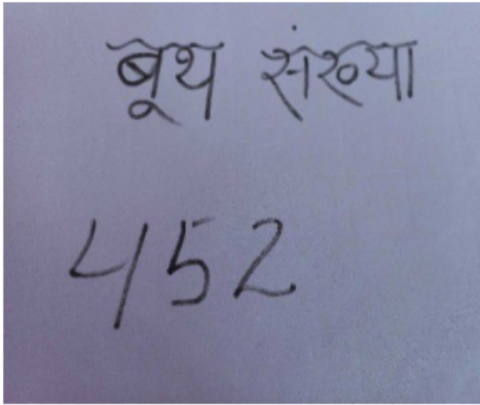 बूथ संख्या
452